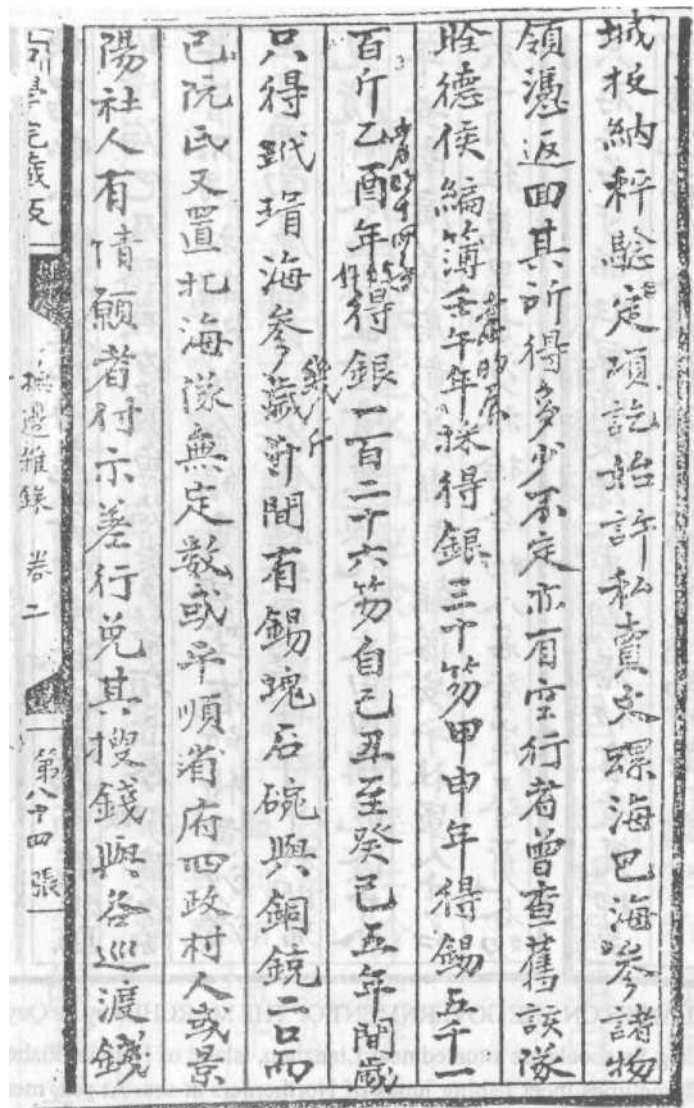 城投納秤驗定項訖始許私賣文螺海巴海參諸物
領憑返回其所得多少不定亦有空行者曾查舊該隊
詮德侯編簿壬午年採得銀三十笏甲申年得錫五千一
百斤乙酉年得銀一百二十六笏自己丑至癸巳五年間歲
只得玳瑁海參
幾斤
間有錫塊石碗與銅銃二口而
已阮氏又置北海隊無定數或平順省府四政村人或景
陽社人有情願者付示差行免其搜錢與各巡渡錢
撫邊雜錄 卷二 第八十四張